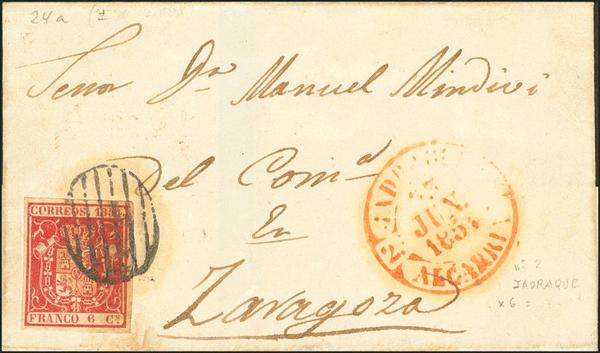 24a
Senor Dn Manuel Mindivi
Del Comd
En
Zaragoza
CORREOS 185
FRANCO 6 Cs
JUN.
185
ALCARRIA
nº 2
JADRAQUE
x6 =